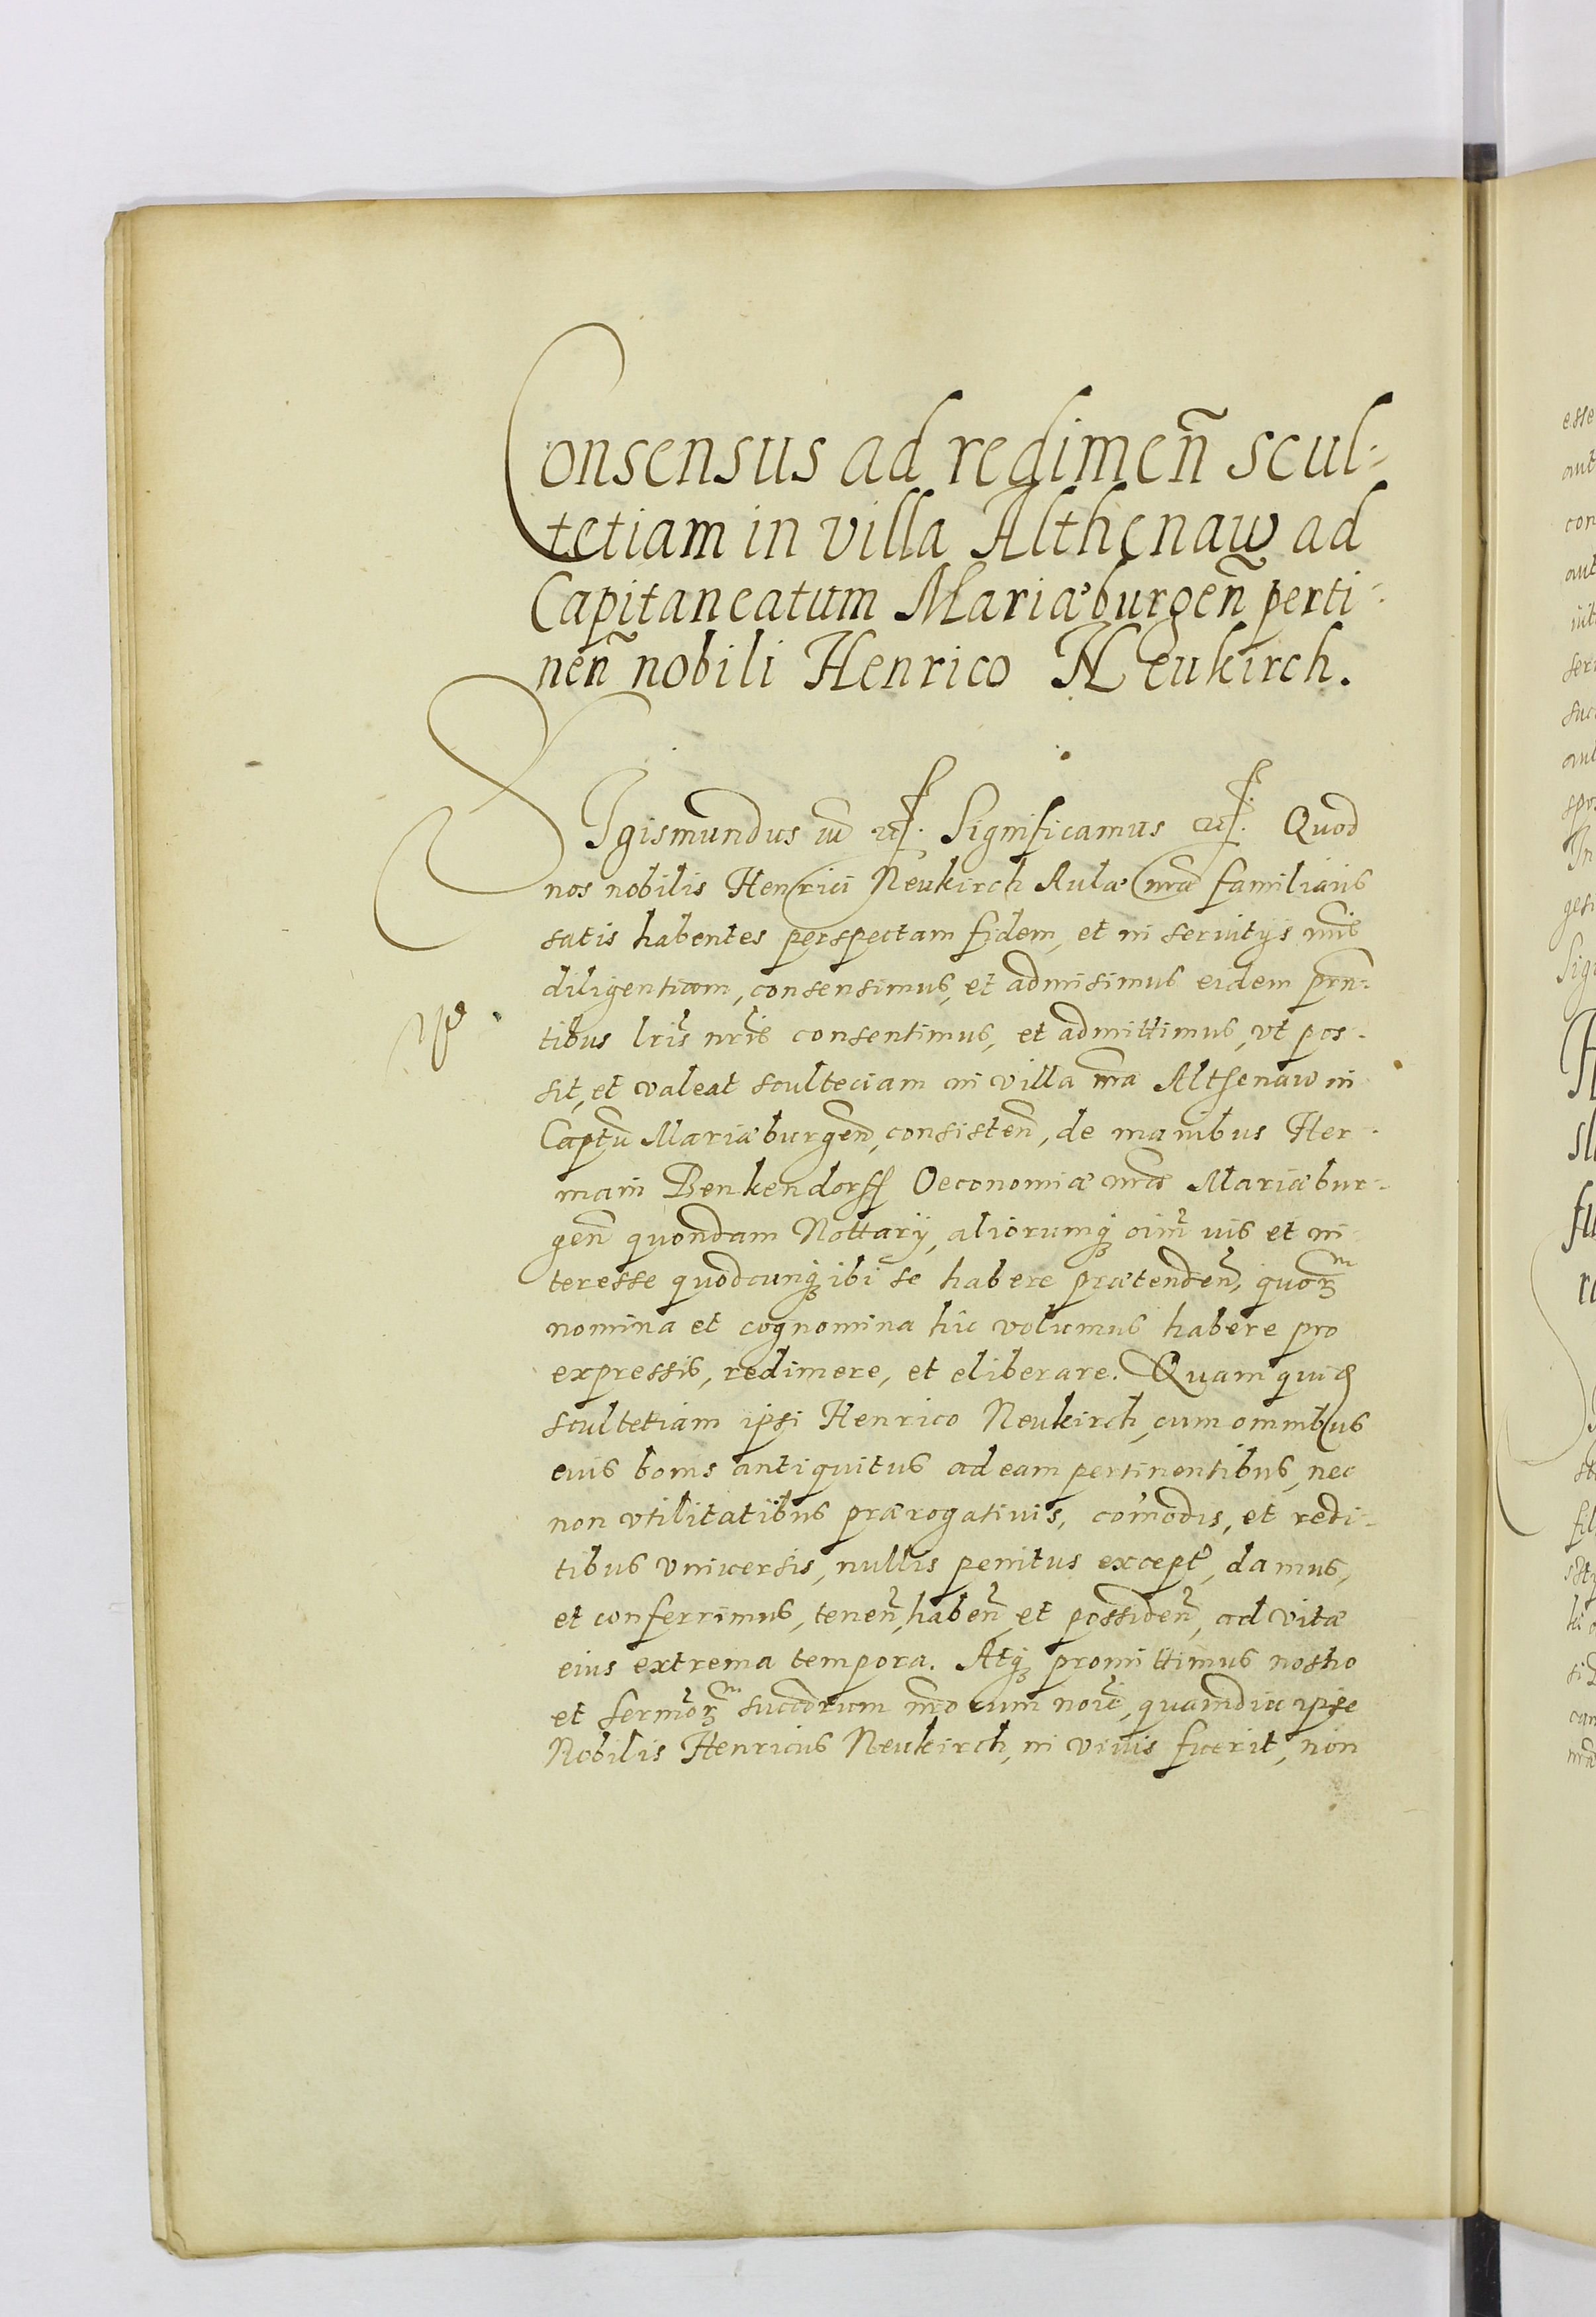 Consensus ad regimen̄ scul-
tetiam in villa Althenaw ad
Capitaneatum Mariæburgen̄ perti-
nen̄ nobili Henrico Neukirch.
SIgismundus Significamus Quod
nos nobilis Henrici Neukirch Aulæ nr̄æ familiaris
satis habentes perspectam fidem, et in seruitijs nr̄is
diligentiam, consensimus, et admisimus eidem prn̄-
tibus lr̄is nr̄is consentimus, et admittimus, vt pos-
sit, et valeat sculteciam in villa nr̄a Althenaw in
Captu Mariæburgen̄, consisten̄, de manibus Her-
mani Benkendorff Oeconomiæ nr̄æ Mariæbur-
gen̄ quondam Nottarij, aliorumq; oim̄ ius et in
teresse quodcunq; ibi se habere prætenden̄, quorꝫ
nomina et cognomina hic volumus habere pro
expressis, redimere, et eliberare. Quam quid̄
scultetiam ipsi Henrico Neukirch, cum omnibus
euis bonis antiquitus ad eam pertinentibus, nec
non vtilitatibus prærogatiuis, com̄odis, et redi-
tibus vniuersis, nullis penitus except̄, damus,
et conferrimus, tenen̄, haben̄, et possiden̄, ad vitæ
eius extrema tempora. Atq; promittimus nostro
et sermōrꝫ succōrum nr̄orum noīe, quamdiu ipse
Nobilis Henricus Neukirch, in viuis fuerit, non